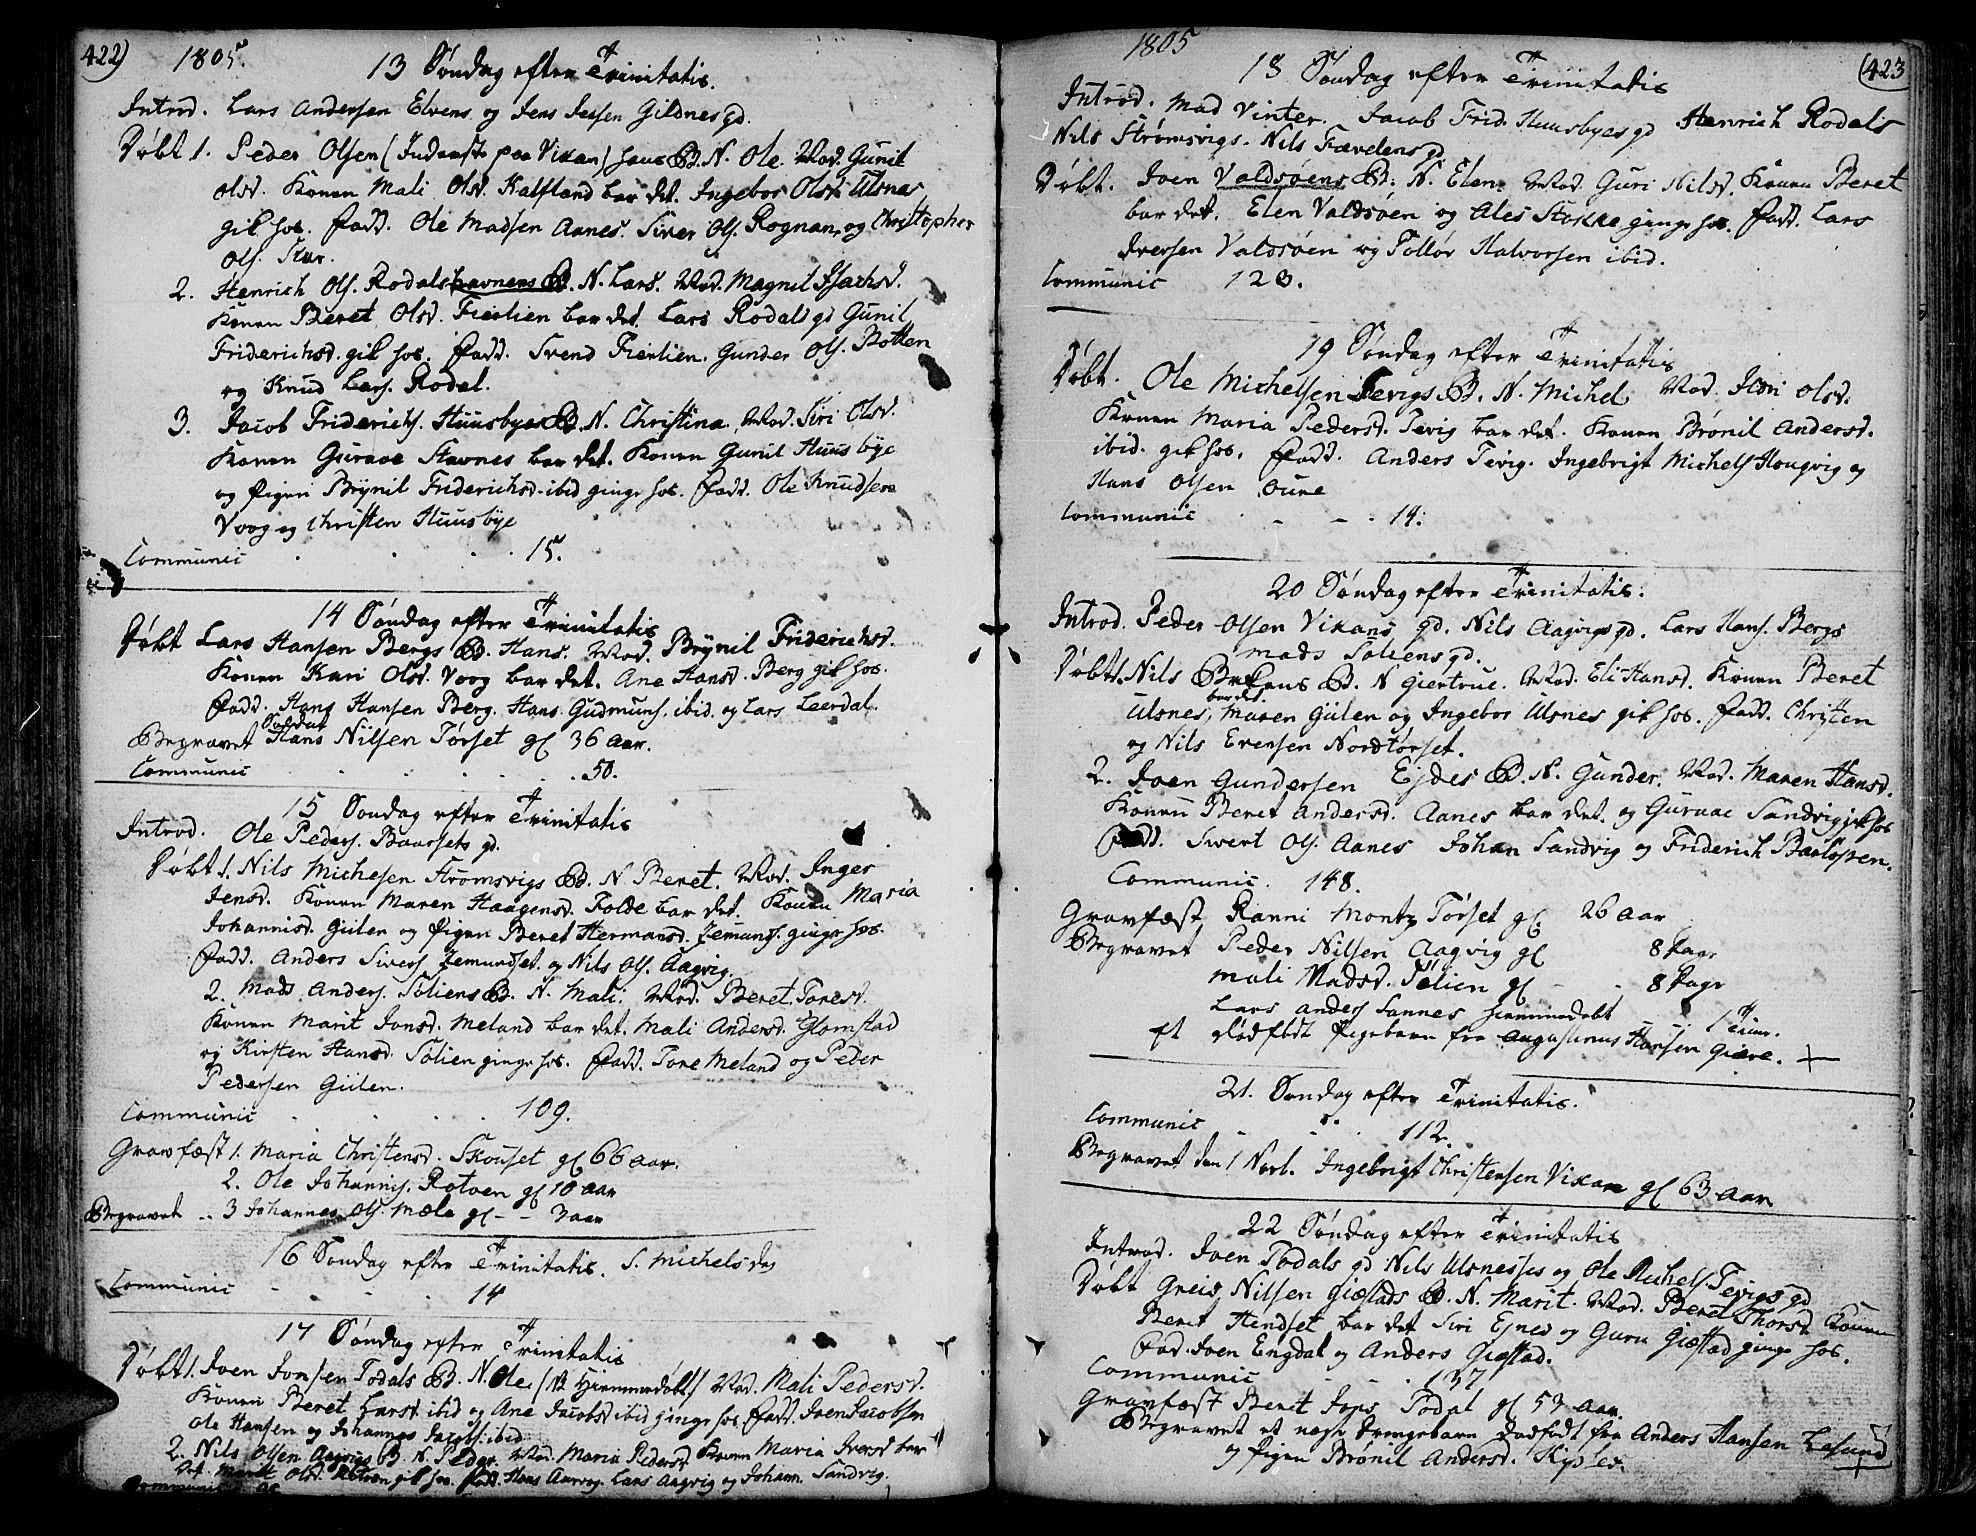 422)
1805.
13 Søndag efter Trinitatis.
Introd. Lars Andersen Elvens og Jens Jessen Gildnes gd.
Døbt 1. Peder Olsen (Inderste paa Vikan) hans B. N. Ole. Mod. Gunil
Olsd. Konen Mali Olsd. Kalfland bar det. Ingebor Olsd. Ulsnæs
gik hos. Fadd. Ole Madsen Aanes. Siver Ols. Rognan, og Christopher
Ols.
2. Henrich Ols. Rodalshavnens B. N. Lars. Mod. Magnil Isachsd.
Konen Beret Olsd. Fierlien bar det. Lars Rodals gd Gunil
Friderichsd. gik hos. Fadd. Svend Fierlien. Gunder Ols. Botten
og Knud Lars. Rodal.
3. Jacob Friderichs. Huusbyes B. N. Christina. Mod. Siri Olsd.
Konen Guraae Stavnes bar det. Konen Gunil Huusbye
og Pigen Brynil Friderichsd. ibid ginge hos. Fadd. Ole Knudsen
Voog og Christen Huusbye
Communic 15.
14 Søndag efter Trinitatis
Døbt Lars Hansen Bergs B. Hans. Mod. Brynil Friderichsd.
Konen Kari Olsd. Voog bar det. Ane Hansd. Berg gik hos.
Fadd. Hans Hansen Berg. Hans Gudmuns. ibid. og Lars Leerdal.
Soldat
Begravet Hans Nilsen Torset gl 36 Aar.
Communic 50.
15 Søndag efter Trinitatis
Introd. Ole Peders. Baarsets gd.
Døbt 1. Nils Michelsen Strømsvigs B. N Beret. Mod. Inger
Jensd. Konen Maren Haagensd. Folde bar det. Konen Maria
Johannisd. Giilen og Pigen Beret Hermansd. Zemuns. ginge hos.
Fadd. Anders Sivers Zemundset. og Nils Ols. Aagvig.
2. Mads Anders. Soliens B. N. Mali. Mod. Beret Toresd.
Konen Marit Jonsd. Meland bar det. Mali Andersd. Glomstad
og Kirsten Hansd. Solien ginge hos. Fadd. Tore Meland og Peder
Pedersen Giilen.
Communic 109.
Gravfæst 1. Maria Christensd. Skouset gl 66 Aar.
2. Ole Johannis. Rotven gl 10 Aar
Begravet .. 3 Johannes Ols. Mæle gl - - 3 aar
16 Søndag efter Trinitatis. S. Michels dag
Communic 14
17 Søndag efter Trinitatis
Døbt 1. Joen Jonsen Todals B. N. Ole. (NB Hjemmedøbt) Mod. Mali Pedersd.
Konen Beret Larsd. ibid og Ane Jacobsd ibid ginge hos. Fadd. Joen Jacobsen
Ole Hansen og Johannes Jacobs. ibid
2. Nils Olsen Aagvigs B. N. Peder. Mod. Maria Pedersd. Konen Maria Iversd bar
det. Marit Olsd. Rotven gik hos. Fadd. Hans Aarvog. Lars Aagvig og Johann. Sandvig.
Communic
(423
1805
18 Søndag efter Trinitatis
Introd. Mad Vinter. Jacob Frid. Huusbyes gd Henrich Rodals
Nils Strømsvigs. Nils Fævelens gd
Døbt. Joen Valdsøens B. N. Elen. Mod. Guri Nilsd. Konen Beret
bar det. Elen Valdsøen og Ales Stokke ginge hos. Fadd. Lars
Iversen Valdsøen og Tollør Halvorsen ibid.
Communic 123.
19 Søndag efter Trinitatis
Døbt. Ole Michelsen Tevigs B. N. Michel. Mod. Olsd.
Konen Maria Pedersd. Tevig bar det. Konen Brønil Andersd.
ibid. gik hos. Fadd. Anders Tevig. Ingebrigt Michels Hougvig og
Hans Olsen Oune
Communic 14.
20 Søndag efter Trinitatis.
Introd. Peder Olsen Vikans gd. Nils Aagvigs gd. Lars Hans. Bergs
Mads Soliens gd.
Døbt 1. Nils B. N Giertrue. Mod. Eli Hansd. Konen Beret
bar det.
Ulsnes, Maren Giilen og Ingebor Ulsnes gik hos. Fadd. Christen
og Nils Evensen Nordtorset.
2. Joen Gundersen Ejdes B. N. Gunder. Mod. Maren Hansd.
Konen Beret Andersd. Aanes bar det. og Guraae Sandvig gik hos
Fadd. Sivert Ols. Aanes Johan Sandvig og Friderich
Communic. 148.
Gravfæst Ranni Montz Torset gl 26 Aar
Begravet Peder Nilsen Aagvig gl 8 Dage
Mali Madsd. Solien gl - . 8 Dage
Lars Anders Sannes hiemmedøbt - - 1 Time.
Et dødfødt Pigebarn fra Augustinus Hansen Giære.
21. Søndag efter Trinitatis.
Communic 112.
Begravet den 1 Novb. Ingebrigt Christensen Vikan gl 63 Aar
22 Søndag efter Trinitatis
Introd. Joen Todals gd Nils Ulsneses og Ole Michels. Tevigs gd
Døbt Greis Nilsen Giøstads B. N. Marit. Mod. Beret Thorsd. Konen
Beret Hendset bar det Siri Ejnes og Guru Giøstad ginge hos.
Fad. Joen Engdal og Anders Giøstad.
Communic 137
Gravfæst Beret Todal gl 53 Aar.
Begravet et Drengebarn dødfødt fra Anders Hansen Løsund
og Pigen Brønil Andersd.